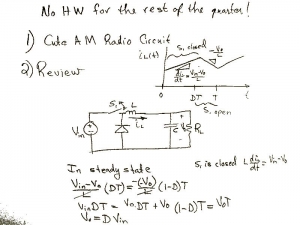 No HW for the rest of the quarter!
1) Cute AM Radio Circuit
2) Review
S₁ closed
i_L(t)
-V₀/L
di/dt = Vin-V₀/L
0 DT T t
S₁ open
S₁ L
i_L
Vin
C
R_L
S₁ is closed L di/dt = Vin-V₀
In steady state
Vin-V₀/L (DT) = -(-V₀/L)(1-D)T
VinDT = V₀DT + V₀(1-D)T = V₀T
V₀ = D Vin